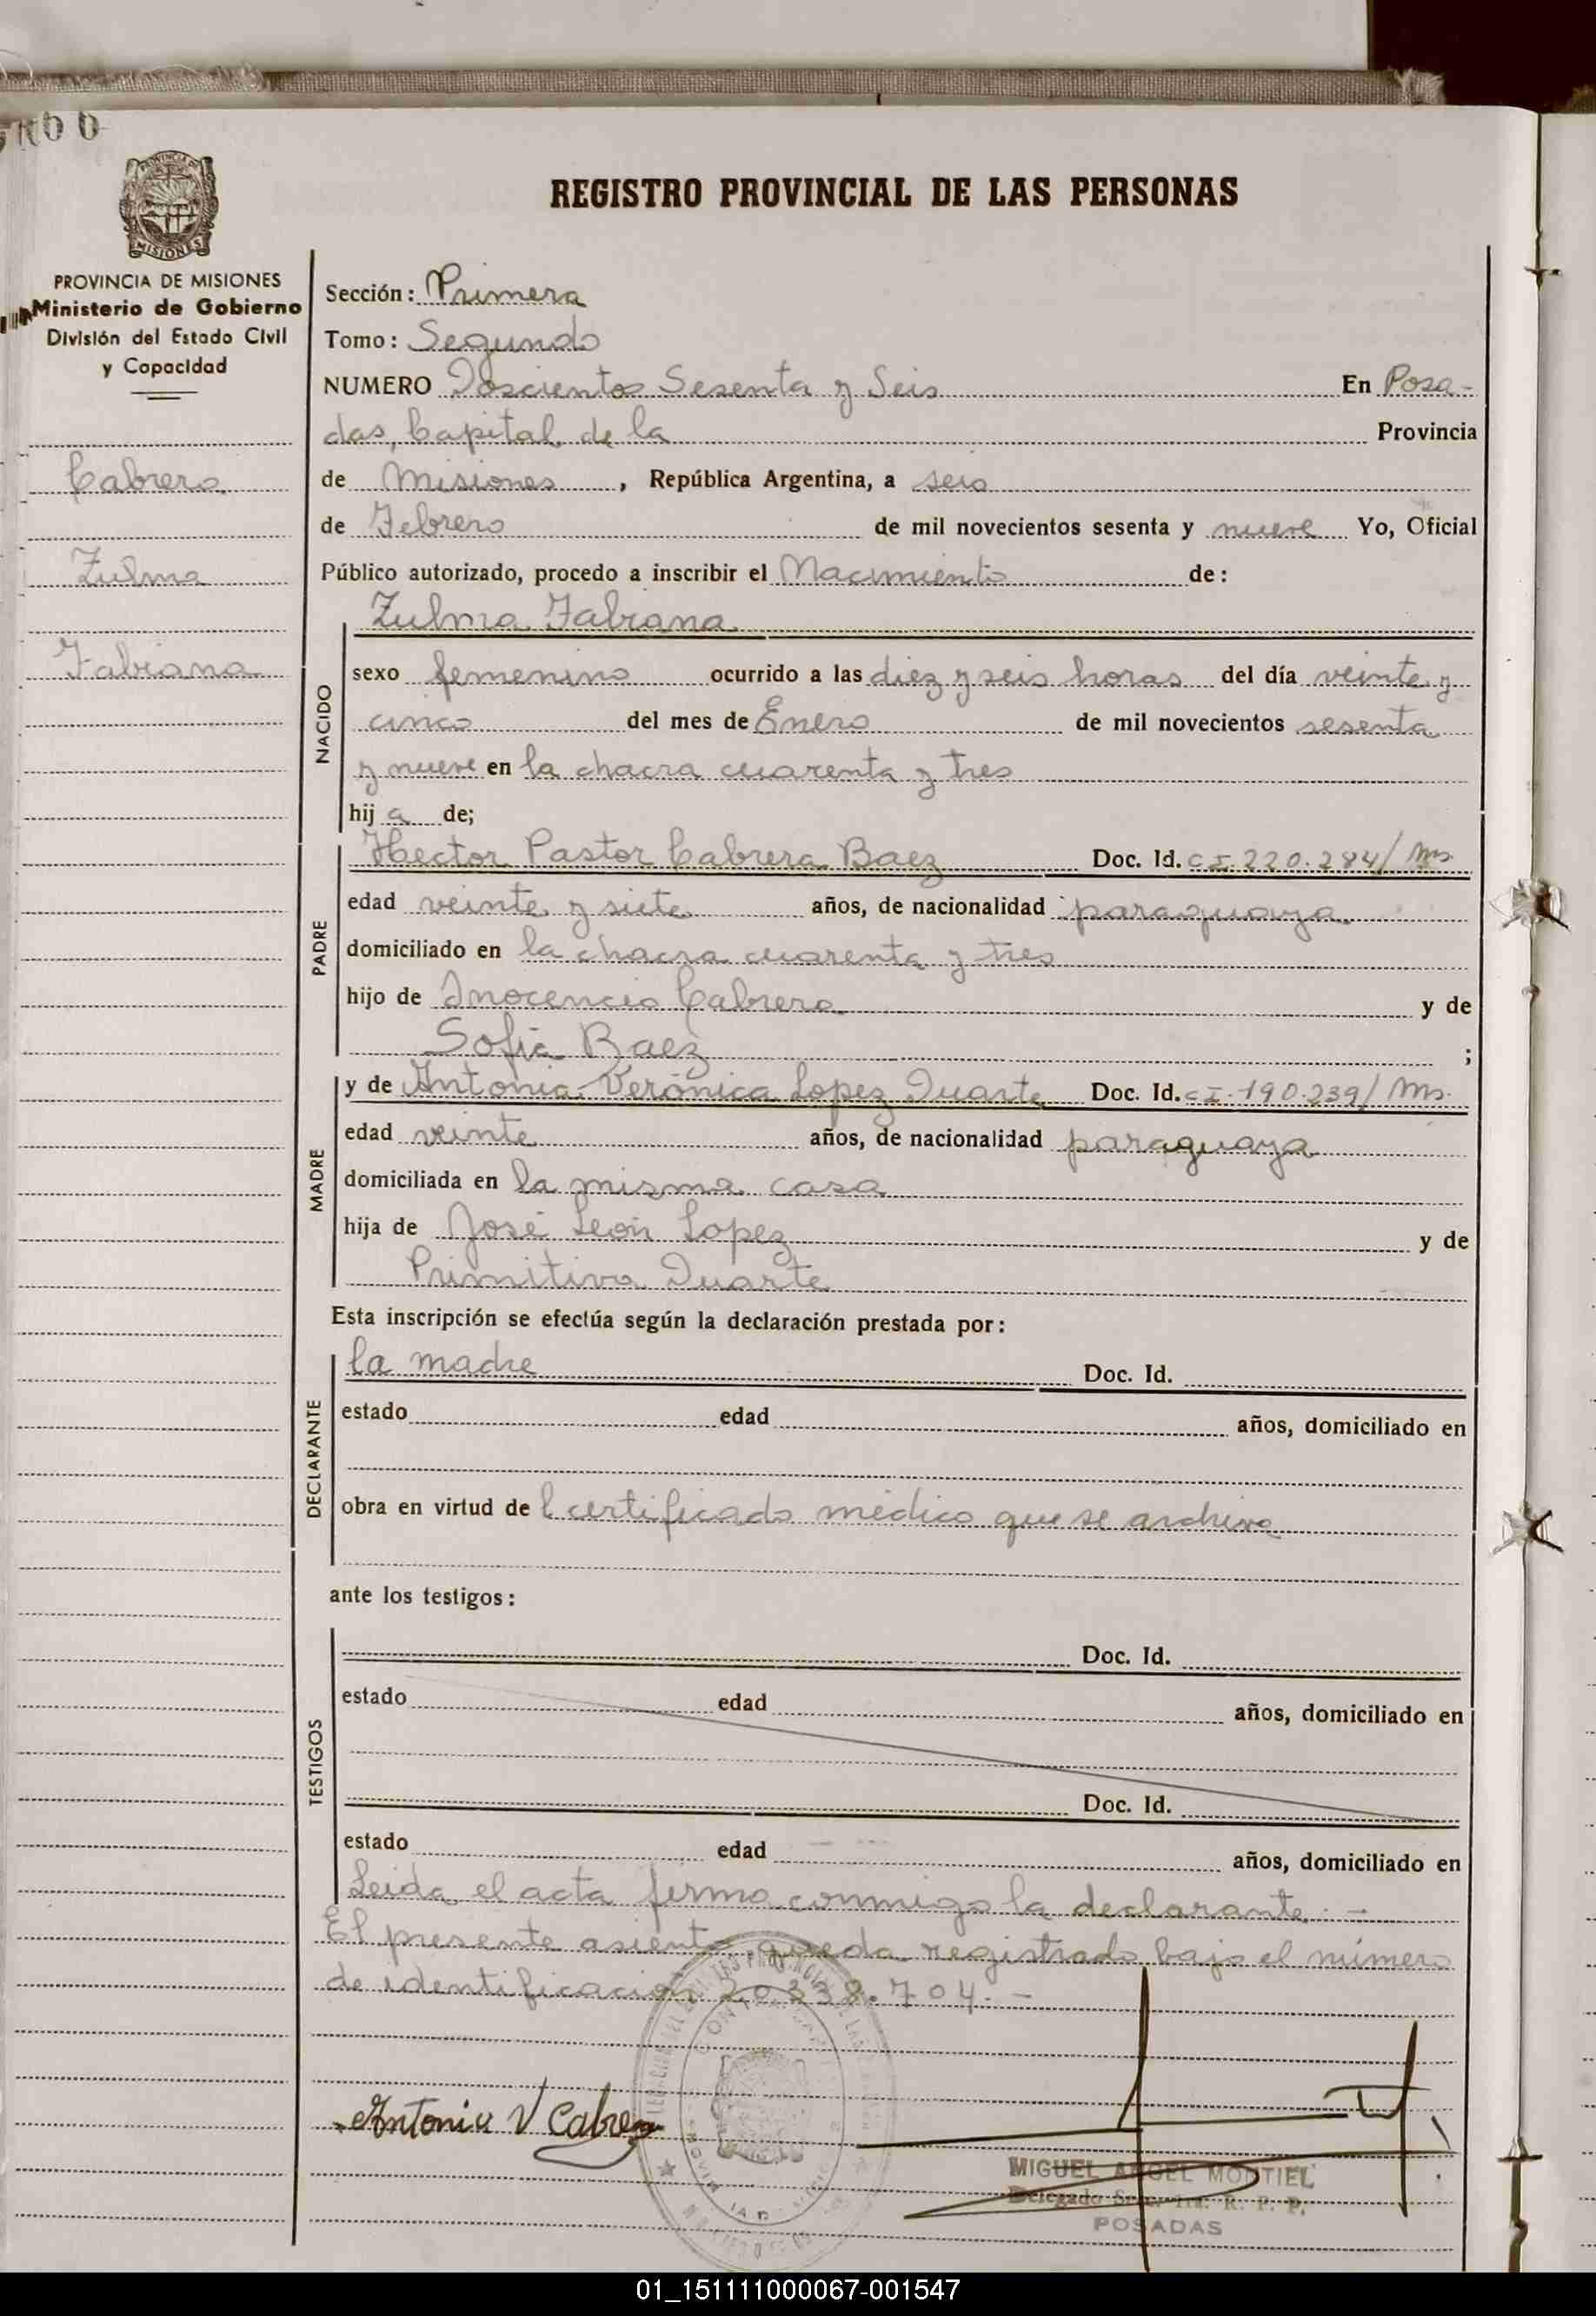 66
PROVINCIA DE
MISIONES
PROVINCIA DE MISIONES
Ministerio de Gobierno
División del Estado Civil
y Capacidad
Cabrera
Zulma
Fabiana
REGISTRO PROVINCIAL DE LAS PERSONAS
Sección: Primera
Tomo: Segundo
NUMERO Doscientos Sesenta y Seis En Posa-
das, Capital de la Provincia
de Misiones, República Argentina, a seis
de Febrero de mil novecientos sesenta y nueve Yo, Oficial
Público autorizado, procedo a inscribir el Nacimiento de:
NACIDO
Zulma Fabiana
sexo femenino ocurrido a las diez y seis horas del día veinte y
cinco del mes de Enero de mil novecientos sesenta
y nueve en la chacra cuarenta y tres
hij a de;
PADRE
Hector Pastor Cabrera Baez Doc. Id. CI. 220.284/Ms.
edad veinte y siete años, de nacionalidad paraguaya
domiciliado en la chacra cuarenta y tres
hijo de Inocencio Cabrera y de
Sofia Baez ;
MADRE
y de Antonia Verónica Lopez Duarte Doc. Id. CI. 190.239/Ms.
edad veinte años, de nacionalidad paraguaya
domiciliada en la misma casa
hija de José León Lopez y de
Primitiva Duarte
Esta inscripción se efectúa según la declaración prestada por:
DECLARANTE
la madre Doc. Id.
estado edad años, domiciliado en
obra en virtud de l certificado médico que se archiva
ante los testigos:
TESTIGOS
Doc. Id.
estado edad años, domiciliado en
Doc. Id.
estado edad años, domiciliado en
Leida el acta firma conmigo la declarante.-
El presente asiento queda registrado bajo el número
de identificación 20.338.704.-
Antonia V Cabrera
MIGUEL ANGEL MONTIEL
Delegado Secc. 1ra. R. P. P.
POSADAS
01_151111000067-001547